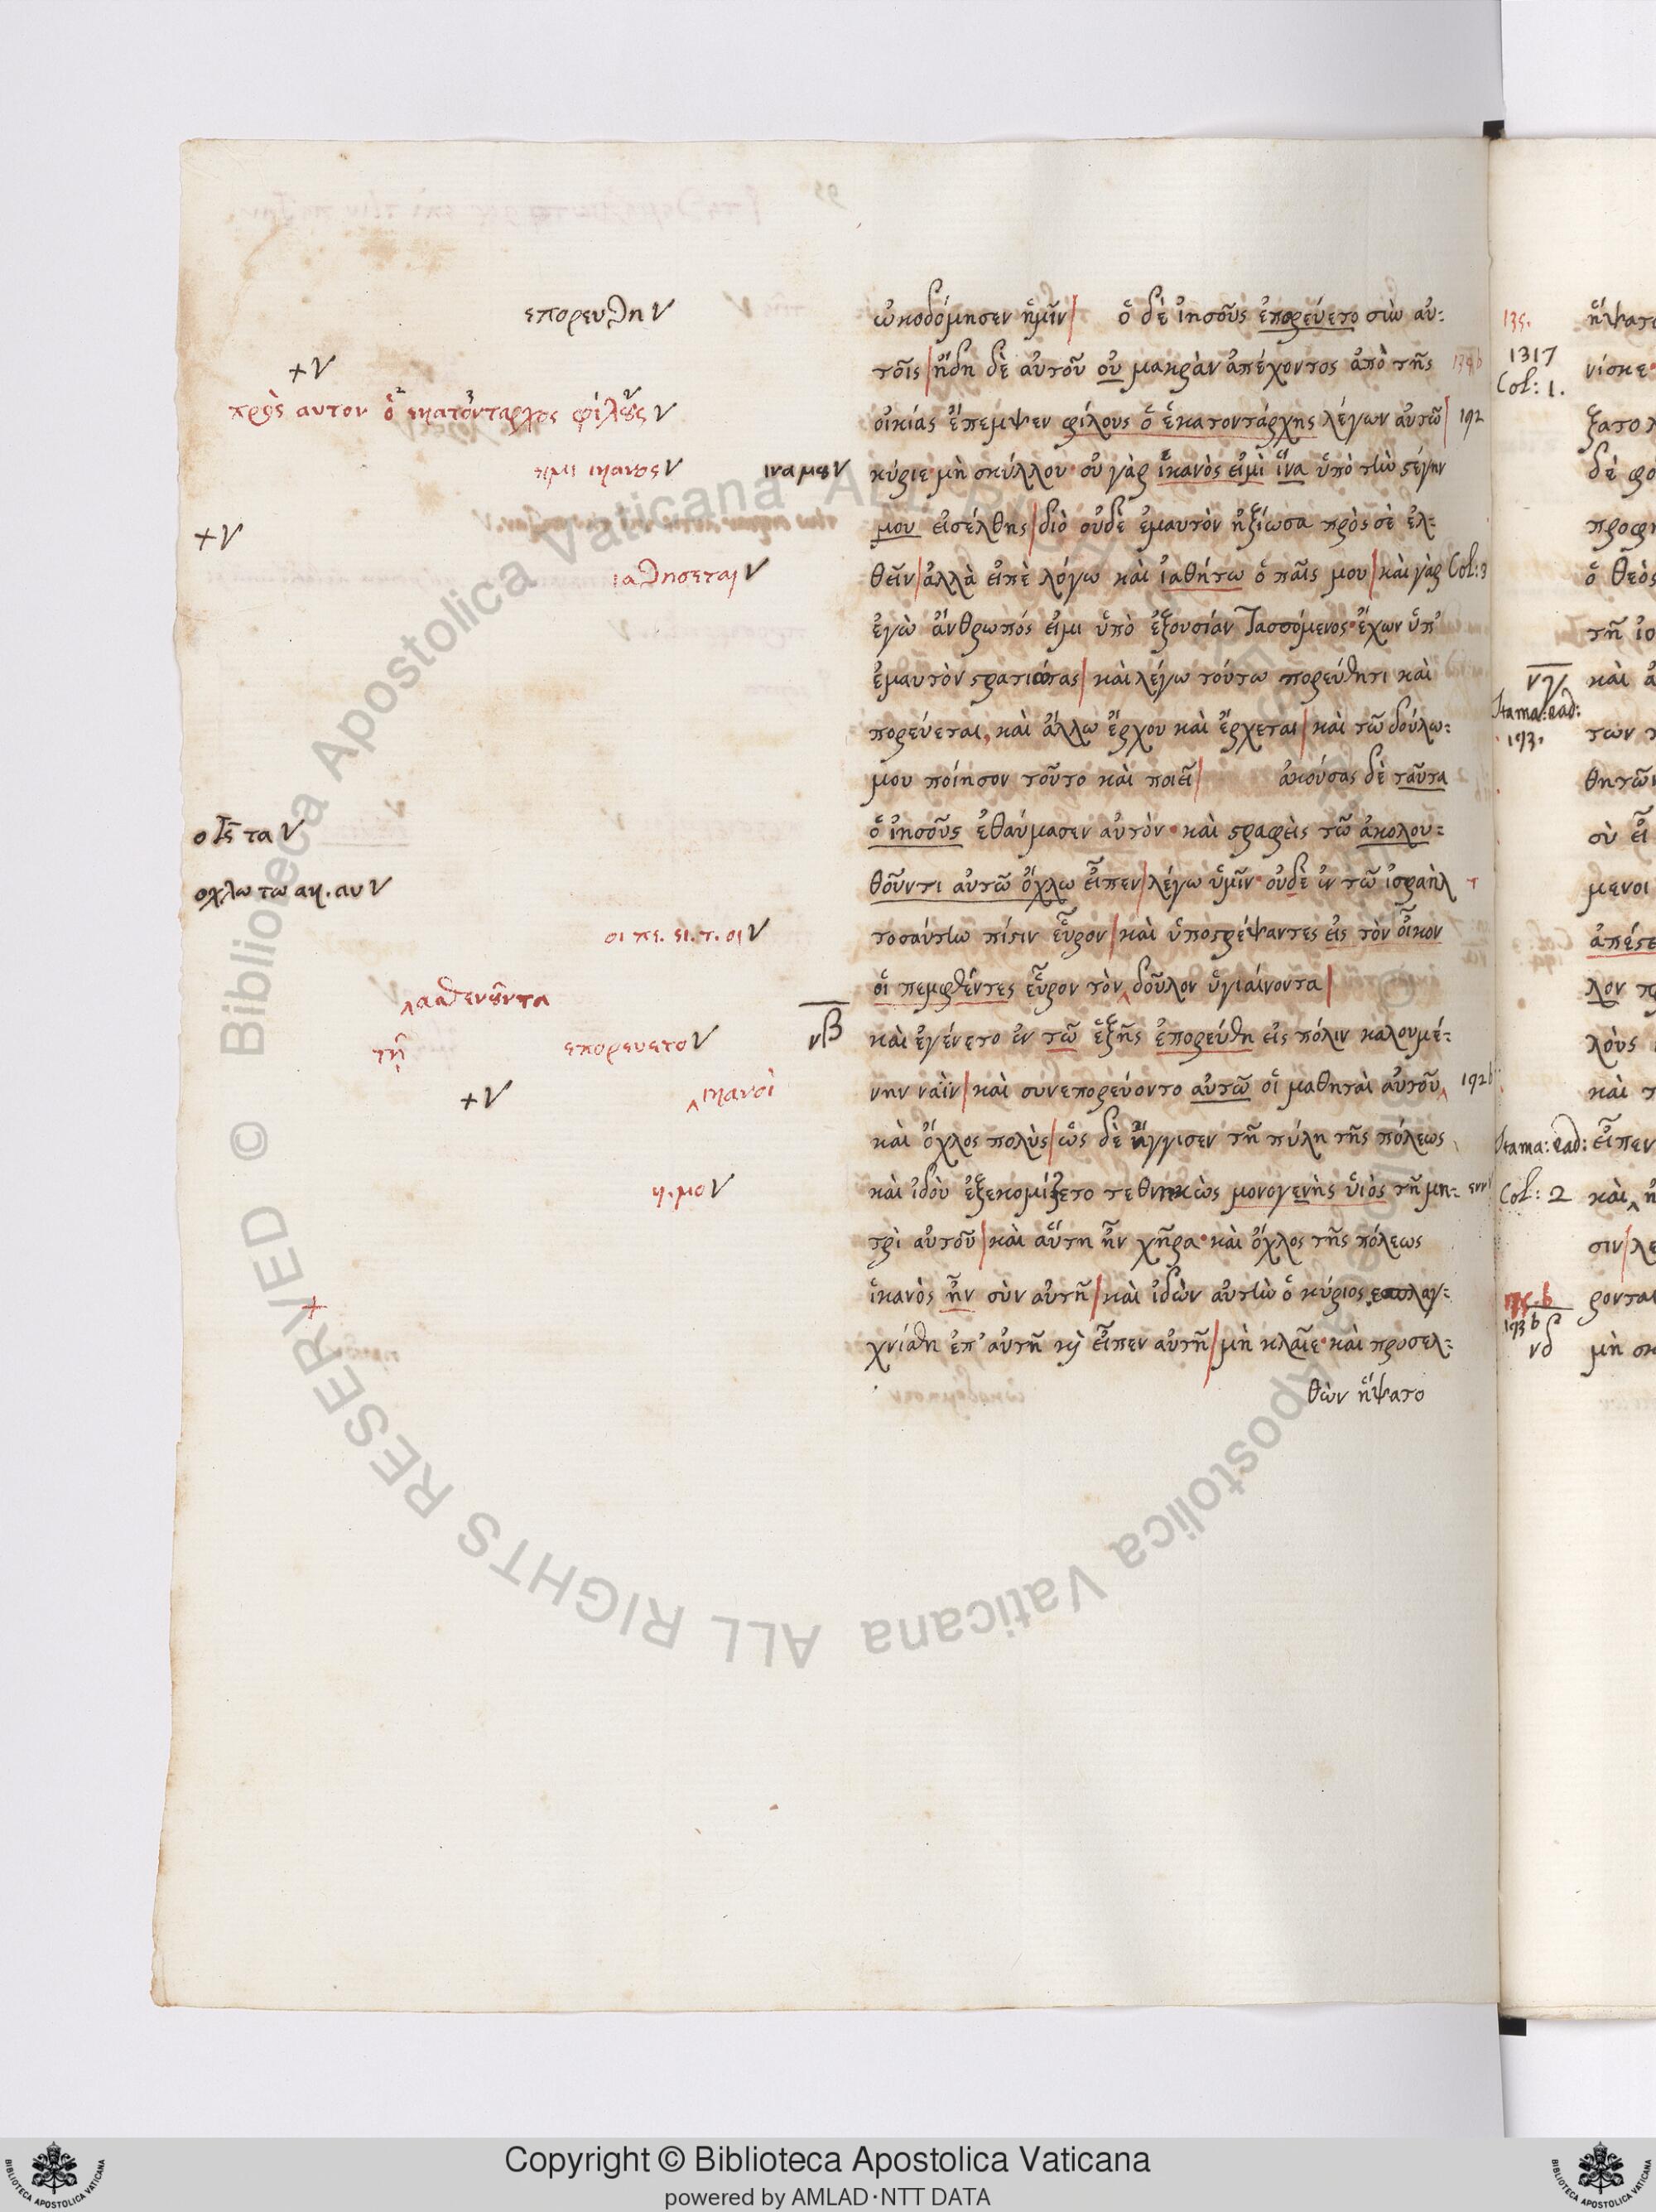 επορευθη V
+V
πρὸς αυτον ὁ εκατόνταρχος φίλους V
ειμι ικανος V
ινα μου V
+V
ιαθησεται V
ο ΙΣ̅ τα V
οχλω τω ακ. αυ V
οι πε. ει. τ. οι V
‸ασθενοῦντα
τῇ
επορευετο V
+V
‸ικανοὶ
υ. μο V
+
νβ
ὠκοδόμησεν ἡμῖν| ὁ δὲ ἰησοῦς ἐπορεύετο σὺν αὐ:
τοῖς|ἤδη δὲ αὐτοῦ οὐ μακρὰν ἀπέχοντος ἀπὸ τῆς 139b
οἰκίας ἔπεμψεν φίλους ὁ ἑκατοντάρχης λέγων αὐτῶ| 192
κύριε· μὴ σκύλλου· οὐ γὰρ ἱκανὸς εἰμὶ ἵνα ὑπὸ τὴν στέγην
μου εἰσέλθης|διὸ οὐδὲ ἐμαυτὸν ἠξίωσα πρὸς σὲ ἐλ:
θεῖν|ἀλλὰ εἰπὲ λόγω καὶ ἰαθήτω ὁ παῖς μου|καὶ γὰρ Col: 3
ἐγὼ ἄνθρωπός εἰμι ὑπὸ ἐξουσίαν τασσόμενος· ἔχων ὑπ'
ἐμαυτὸν στρατιώτας|καὶ λέγω τούτω πορεύθητι καὶ
πορεύεται, καὶ ἄλλω ἔρχου καὶ ἔρχεται|καὶ τῶ δούλω:
μου ποίησον τοῦτο καὶ ποιεῖ| ἀκούσας δὲ ταῦτα
ὁ ἰησοῦς ἐθαύμασεν αὐτόν· καὶ στραφεὶς τῶ ἀκολου:
θοῦντι αὐτῶ ὄχλω εἶπεν|λέγω ὑμῖν· οὐδὲ ἐν τῶ ἰσραὴλ
τοσαύτην πίστιν εὗρον|καὶ ὑποστρέψαντες εἰς τὸν οἶκον
οἱ πεμφθέντες εὗρον τὸν‸ δοῦλον ὑγιαίνοντα|
καὶ ἐγένετο ἐν τῶ ἑξῆς ἐπορεύθη εἰς πόλιν καλουμέ:
νην ναὶν|καὶ συνεπορεύοντο αὐτῶ οἱ μαθηταὶ αὐτοῦ‸ 192b
καὶ ὄχλος πολὺς|ὡς δὲ ἤγγισεν τῆ πύλη τῆς πόλεως
καὶ ἰδοὺ ἐξεκομίζετο τεθνηκὼς μονογενὴς ὑιὸς τῆ μη:
τρὶ αὐτοῦ|καὶ αὕτη ἦν χῆρα· καὶ ὄχλος τῆς πόλεως
ἱκανὸς ἦν σὺν αὐτῆ|καὶ ἰδὼν αὐτὴν ὁ κύριος ἐσπλαγ:
χνίσθη ἐπ' αὐτῆ κὶ εἶπεν αὐτῆ|μὴ κλαῖε· καὶ προσελ:
θὼν ἥψατο
1317
Col: 1.
νγ
193.
Col: 2
193b
νδ
ἥψατο
νίσκε·
ξατο λ
δὲ φό
προφη
ὁ θεὸς
τῆ ἰο
καὶ ἀ
των τ
θητῶν
σὺ εἶ
μενοι
ἀπέστε
λον π
λοὺς
καὶ τ
εἶπεν
καὶ‸ ἠ
σιν|λε
ρονται
μὴ σκ
Copyright © Biblioteca Apostolica Vaticana
powered by AMLAD·NTT DATA
© Biblioteca Apostolica Vaticana ALL RIGHTS RESERVED